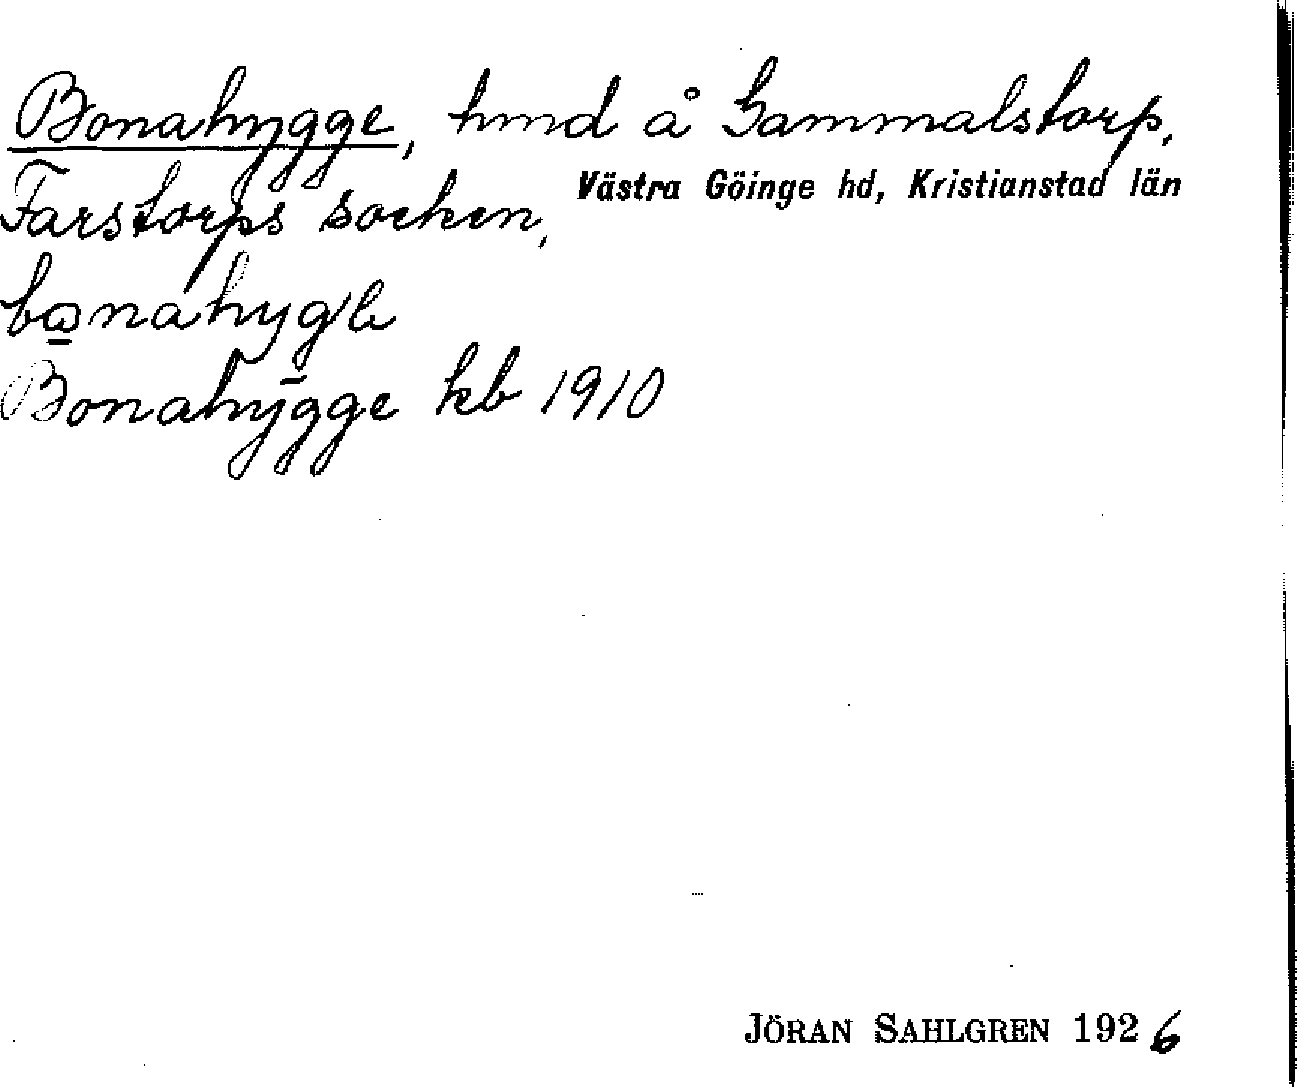 Bonahygge, hmd å Gammalstorp,
Farstorps socken, Västra Göinge hd, Kristianstad län
Bonahygge kb 1910
JÖRAN SAHLGREN 1926